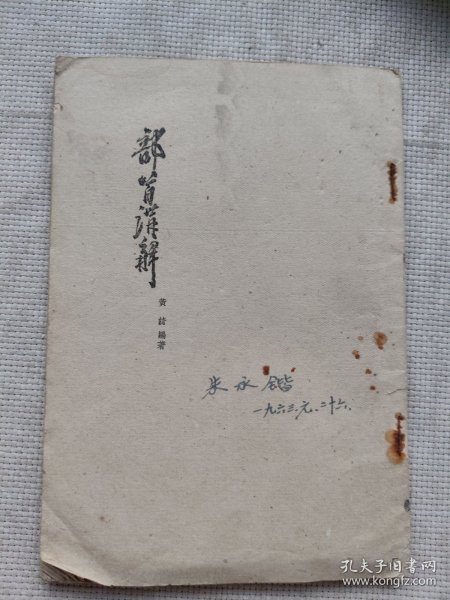 部首講解
黄綺編著
朱永鍇
一九六三.元.二十六.
孔夫子旧书网
www.kongfz.com